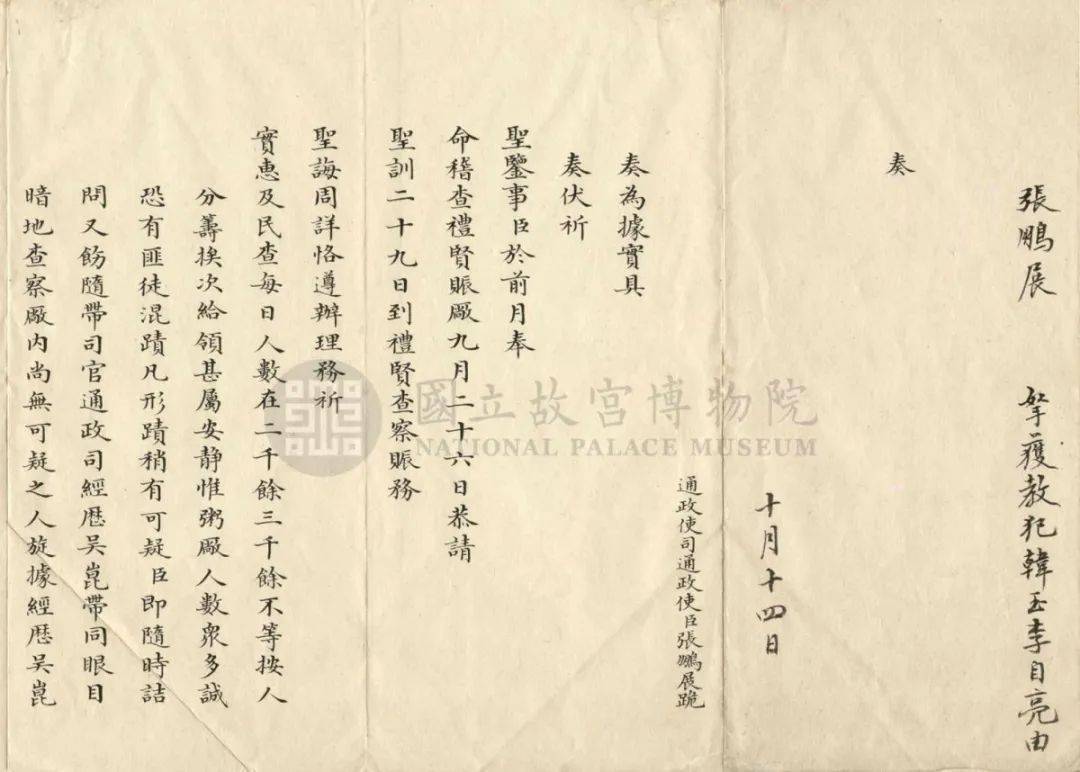 張鵬展　拏獲教犯韓玉李自亮由
奏
十月十四日
通政使司通政使臣張鵬展跪
奏為據實具
奏伏祈
聖鑒事臣於前月奉
命稽查禮賢賑厰九月二十六日恭請
聖訓二十九日到禮賢查察賑務
聖誨周詳恪遵辦理務祈
實惠及民查每日人數在二千餘三千餘不等按人
分籌挨次給領甚屬安静惟粥厰人數衆多誠
恐有匪徒混蹟凡形蹟稍有可疑臣即隨時詰
問又飭隨帶司官通政司經歷吳崑帶同眼目
暗地查察厰内尚無可疑之人旋據經歷吳崑
國立故宮博物院
NATIONAL PALACE MUSEUM